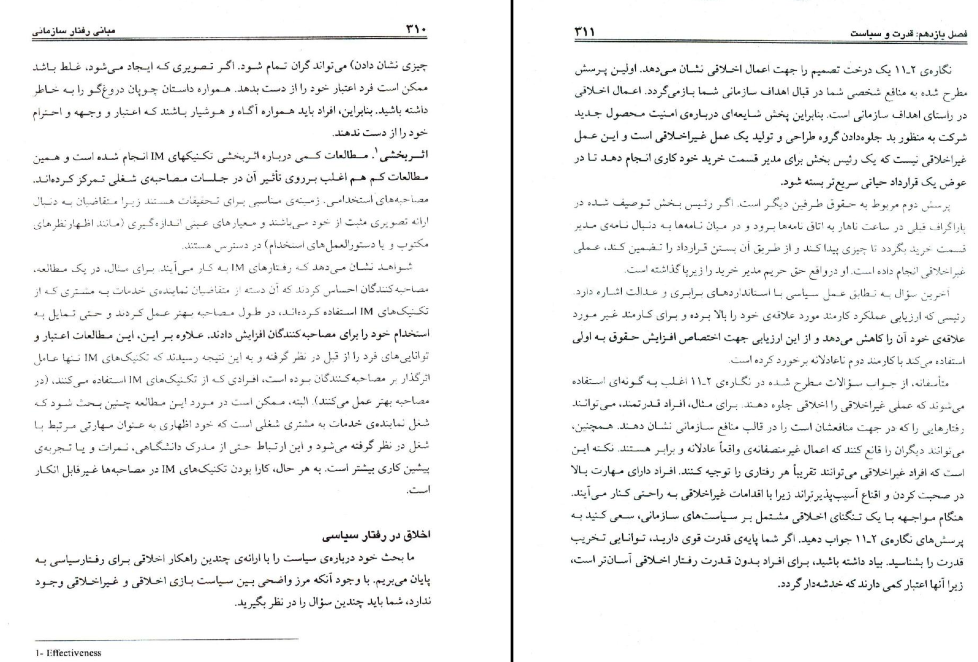 ۳۱۰ مبانی رفتار سازمانی
چیزی نشان دادن) می‌تواند گران تمام شود. اگر تصویری که ایجاد می‌شود، غلط باشد
ممکن است فرد اعتبار خود را از دست بدهد. همواره داستان چوپان دروغ‌گو را به خاطر
داشته باشید. بنابراین، افراد باید همواره آگاه و هوشیار باشند که اعتبار و وجهه و احترام
خود را از دست ندهند.
اثربخشی۱. مطالعات کمی درباره اثربخشی تکنیکهای IM انجام شده است و همین
مطالعات کم هم اغلب برروی تأثیر آن در جلسات مصاحبه‌ی شغلی تمرکز کرده‌اند.
مصاحبه‌های استخدامی، زمینه‌ی مناسبی برای تحقیقات هستند زیرا متقاضیان به دنبال
ارائه تصویری مثبت از خود می‌باشند و معیارهای عینی اندازه‌گیری (مانند اظهارنظرهای
مکتوب و یا دستورالعمل‌های استخدام) در دسترس هستند.
شواهد نشان می‌دهد که رفتارهای IM به کار می‌آیند. برای مثال، در یک مطالعه،
مصاحبه‌کنندگان احساس کردند که آن دسته از متقاضیان نماینده‌ی خدمات به مشتری که از
تکنیک‌های IM استفاده کرده‌اند، در طول مصاحبه بهتر عمل کردند و حتی تمایل به
استخدام خود را برای مصاحبه‌کنندگان افزایش دادند. علاوه بر این، این مطالعات اعتبار و
توانایی‌های فرد را از قبل در نظر گرفته و به این نتیجه رسیدند که تکنیک‌های IM تنها عامل
اثرگذار بر مصاحبه‌کنندگان بوده است، افرادی که از تکنیک‌های IM استفاده می‌کنند، (در
مصاحبه بهتر عمل می‌کنند). البته، ممکن است در مورد این مطالعه چنین بحث شود که
شغل نماینده‌ی خدمات به مشتری شغلی است که خود اظهاری به عنوان مهارتی مرتبط با
شغل در نظر گرفته می‌شود و این ارتباط حتی از مدرک دانشگاهی، نمرات و یا تجربه‌ی
پیشین کاری بیشتر است. به هر حال، کارا بودن تکنیک‌های IM در مصاحبه‌ها غیرقابل انکار
است.
اخلاق در رفتار سیاسی
ما بحث خود درباره‌ی سیاست را با ارائه‌ی چندین راهکار اخلاقی برای رفتارسیاسی به
پایان می‌بریم. با وجود آنکه مرز واضحی بین سیاست بازی اخلاقی و غیراخلاقی وجود
ندارد، شما باید چندین سؤال را در نظر بگیرید.
1- Effectiveness
فصل یازدهم: قدرت و سیاست ۳۱۱
نگاره‌ی ۲ـ۱۱ یک درخت تصمیم را جهت اعمال اخلاقی نشان می‌دهد. اولین پرسش
مطرح شده به منافع شخصی شما در قبال اهداف سازمانی شما بازمی‌گردد. اعمال اخلاقی
در راستای اهداف سازمانی است. بنابراین پخش شایعه‌ای درباره‌ی امنیت محصول جدید
شرکت به منظور بد جلوه‌دادن گروه طراحی و تولید یک عمل غیراخلاقی است و این عمل
غیراخلاقی نیست که یک رئیس بخش برای مدیر قسمت خرید خود کاری انجام دهد تا در
عوض یک قرارداد حیاتی سریع‌تر بسته شود.
پرسش دوم مربوط به حقوق طرفین دیگر است. اگر رئیس بخش توصیف شده در
پاراگراف قبلی در ساعت ناهار به اتاق نامه‌ها برود و در میان نامه‌ها به دنبال نامه‌ی مدیر
قسمت خرید بگردد تا چیزی پیدا کند و از طریق آن بستن قرارداد را تضمین کند، عملی
غیراخلاقی انجام داده است. او درواقع حق حریم مدیر خرید را زیرپا گذاشته است.
آخرین سؤال به تطابق عمل سیاسی با استانداردهای برابری و عدالت اشاره دارد.
رئیسی که ارزیابی عملکرد کارمند مورد علاقه‌ی خود را بالا برده و برای کارمند غیر مورد
علاقه‌ی خود آن را کاهش می‌دهد و از این ارزیابی جهت اختصاص افزایش حقوق به اولی
استفاده می‌کند با کارمند دوم ناعادلانه برخورد کرده است.
متأسفانه، از جواب سؤالات مطرح شده در نگاره‌ی ۲ـ۱۱ اغلب به گونه‌ای استفاده
می‌شوند که عملی غیراخلاقی را اخلاقی جلوه دهند. برای مثال، افراد قدرتمند، می‌توانند
رفتارهایی را که در جهت منافعشان است را در قالب منافع سازمانی نشان دهند. همچنین،
می‌توانند دیگران را قانع کنند که اعمال غیرمنصفانه‌ی واقعاً عادلانه و برابر هستند. نکته این
است که افراد غیراخلاقی می‌توانند تقریباً هر رفتاری را توجیه کنند. افراد دارای مهارت بالا
در صحبت کردن و اقناع آسیب‌پذیرتراند زیرا با اقدامات غیراخلاقی به راحتی کنار می‌آیند.
هنگام مواجهه با یک تنگنای اخلاقی مشتمل بر سیاست‌های سازمانی، سعی کنید به
پرسش‌های نگاره‌ی ۲ـ۱۱ جواب دهید. اگر شما پایه‌ی قدرت قوی دارید، توانایی تخریب
قدرت را بشناسید. بیاد داشته باشید، برای افراد بدون قدرت رفتار اخلاقی آسان‌تر است،
زیرا آنها اعتبار کمی دارند که خدشه‌دار گردد.